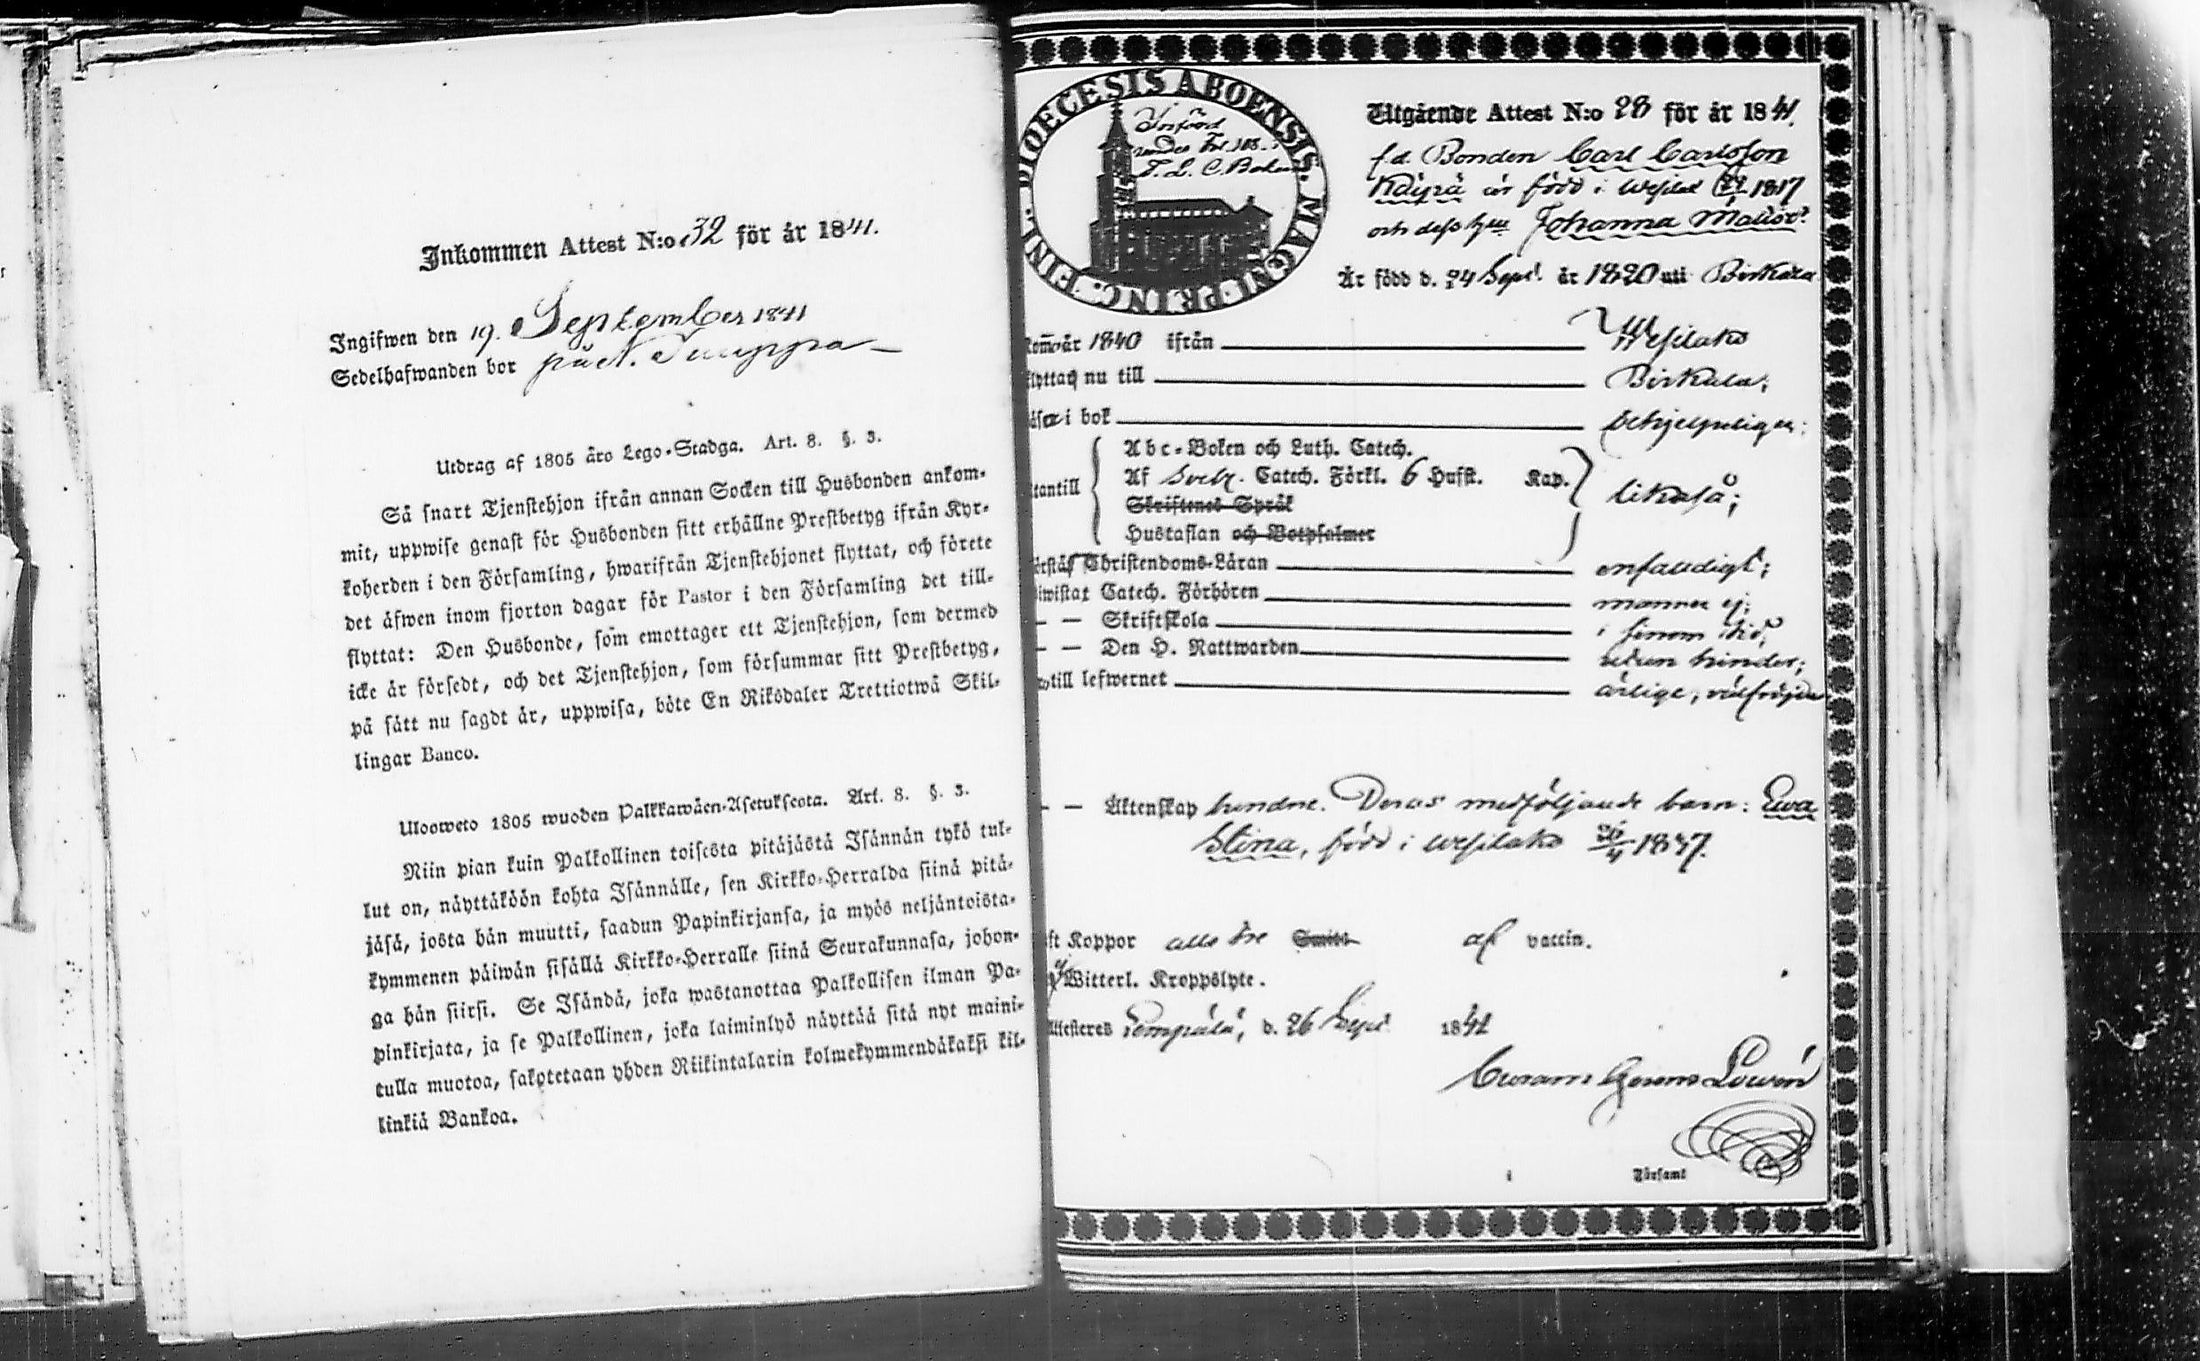 Inkommen Attest N:o 32 för år 1841.
Ingifwen den 19. September 1841
Sedelhafwanden bor på
Utdrag af 1805 års Lego-Stadga. Art. 8. §. 3.
Så snart Tjenstehjon ifrån annan Socken till Husbonden ankom-
mit, uppwise genast för Husbonden sitt erhållne Prestbetyg ifrån Kyr-
koherden i den Församling, hwarifrån Tjenstehjonet flyttat, och förete
det äfwen inom fjorton dagar för Pastor i den Församling det till-
flyttat: Den Husbonde, som emottager ett Tjenstehjon, som dermed
icke är försedt, och det Tjenstehjon, som försummar sitt Prestbetyg,
på sätt nu sagdt är, uppwisa, böte En Riksdaler Trettiotwå Skil-
lingar Banco.
Uloosweto 1805 wuoden Palkkawäen-Asetuksesta. Art. 8. §. 3.
Niin pian kuin Palkollinen toisesta pitäjästä Isännän tykö tul-
lut on, näyttäköön kohta Isännälle, sen Kirkko-Herralda siinä pitä-
jäsä, josta hän muutti, saadun Papinkirjansa, ja myös neljäntoista-
kymmenen päiwän sisällä Kirkko-Herralle siinä Seurakunnasa, johon-
ga hän siirsi. Se Isändä, joka wastanottaa Palkollisen ilman Pa-
pinkirjata, ja se Palkollinen, joka laiminlyö näyttää sitä nyt maini-
tulla muotoa, sakotetaan yhden Riikintalarin kolmekymmendäkaksi kil-
linkiä Bankoa.
DIOECESIS ABOENSIS. MAGNI PRINC. FINL.
Införd
under Fol. 188.
Utgående Attest N:o 28 för år 1841.
f.d. Bonden Carl Carlsson
är född i 1817
och dess Johanna
Är född d. 24 Sept. år 1820 uti Birkala
år 1840 ifrån Wesilaks
nu till Birkala;
i bok behjelpligen;
Abc-Boken och Luth. Catech.
Af Catech. Förkl. 6 Hufst. Kap.
Skriftenes Språk
Hustaflan och Botpsalmer
likaså;
Christendoms-Läran enfaldigt;
Catech. Förhören ej;
— — Skriftskola i sinom tid;
— — Den H. Nattwarden utan hinder;
till lefwernet ärlige,
— — Äktenskap bundne. Deras medföljande barn: Ewa
Stina, född i Wesilaks 1837.
Koppor alla tre af vaccin.
Witterl. Kroppslyte.
Attesteras Lempälä, d. 26 Sept. 1841
Församl